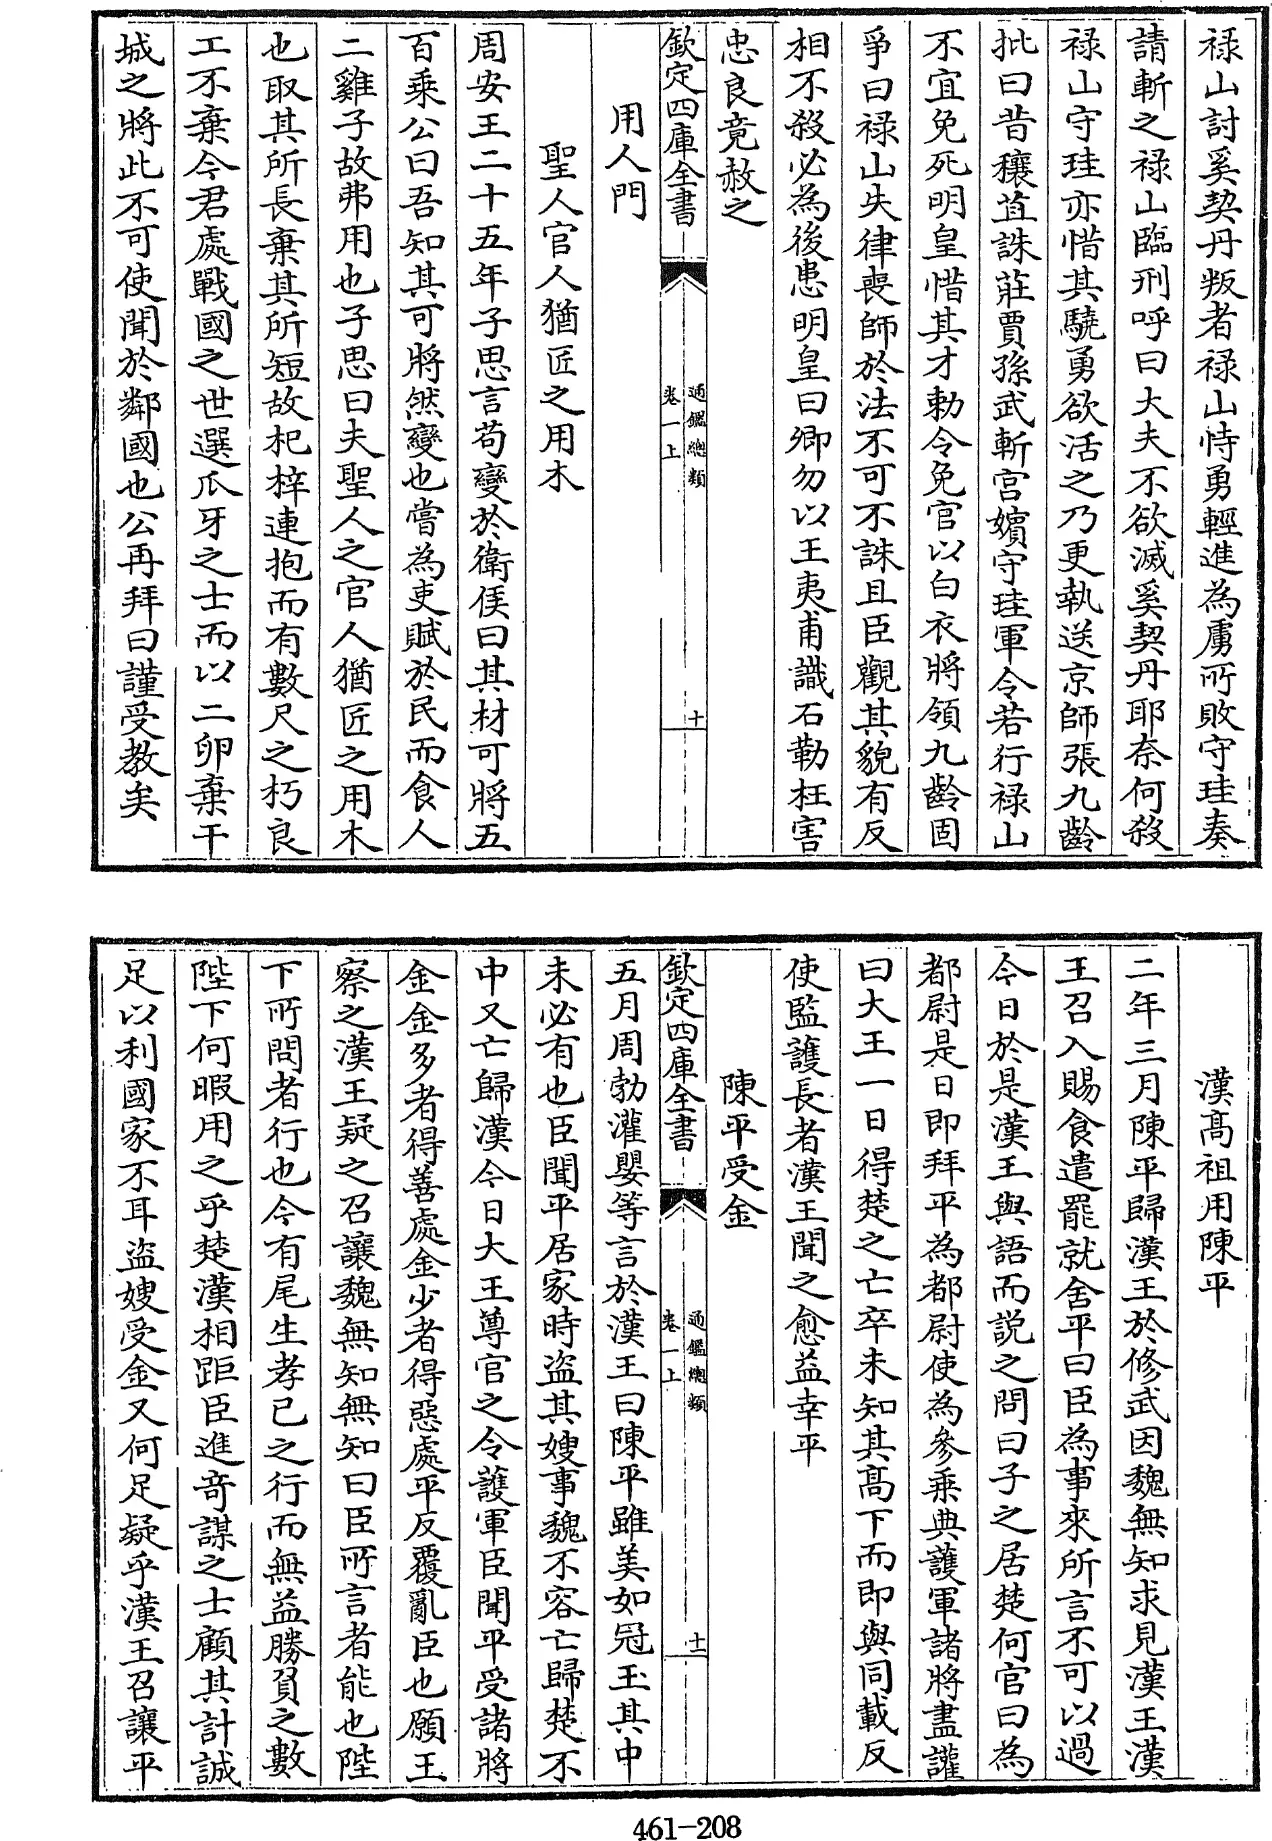 禄山討奚契丹叛者禄山恃勇輕進為虜所敗守珪奏
請斬之禄山臨刑呼曰大夫不欲滅奚契丹耶奈何殺
禄山守珪亦惜其驍勇欲活之乃更執送京師張九齡
批曰昔穰苴誅莊賈孫武斬宮嬪守珪軍令若行禄山
不宜免死明皇惜其才勅令免官以白衣將領九齡固
爭曰禄山失律喪師於法不可不誅且臣觀其貌有反
相不殺必為後患明皇曰卿勿以王夷甫識石勒枉害
忠良竟赦之
欽定四庫全書
通鑑總類
卷一上
十
用人門
聖人官人猶匠之用木
周安王二十五年子思言苟變於衛侯曰其材可將五
百乘公曰吾知其可將然變也嘗為吏賦於民而食人
二雞子故弗用也子思曰夫聖人之官人猶匠之用木
也取其所長棄其所短故杞梓連抱而有數尺之朽良
工不棄今君處戰國之世選爪牙之士而以二卵棄干
城之將此不可使聞於鄰國也公再拜曰謹受教矣
漢高祖用陳平
二年三月陳平歸漢王於修武因魏無知求見漢王漢
王召入賜食遣罷就舍平曰臣為事來所言不可以過
今日於是漢王與語而説之問曰子之居楚何官曰為
都尉是日即拜平為都尉使為參乘典護軍諸將盡讙
曰大王一日得楚之亡卒未知其高下而即與同載反
使監護長者漢王聞之愈益幸平
陳平受金
欽定四庫全書
通鑑總類
卷一上
十一
五月周勃灌嬰等言於漢王曰陳平雖美如冠玉其中
未必有也臣聞平居家時盗其嫂事魏不容亡歸楚不
中又亡歸漢今日大王尊官之令護軍臣聞平受諸將
金金多者得善處金少者得惡處平反覆亂臣也願王
察之漢王疑之召讓魏無知無知曰臣所言者能也陛
下所問者行也今有尾生孝己之行而無益勝負之數
陛下何暇用之乎楚漢相距臣進奇謀之士顧其計誠
足以利國家不耳盗嫂受金又何足疑乎漢王召讓平
461-208